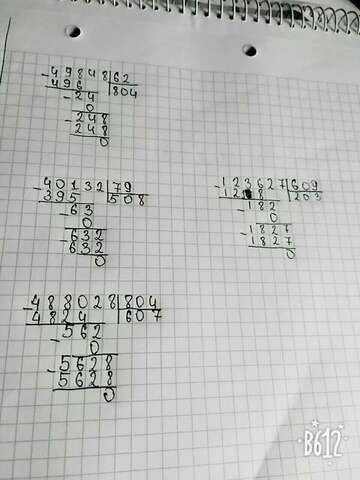 -49848|62
496 |804
-24
0
-248
248
0
-40132|79
395 |508
-63
0
-632
632
0
-123627|609
1218 |203
-182
0
-1827
1827
0
-488028|804
4824 |607
-562
0
-5628
5628
0
B612